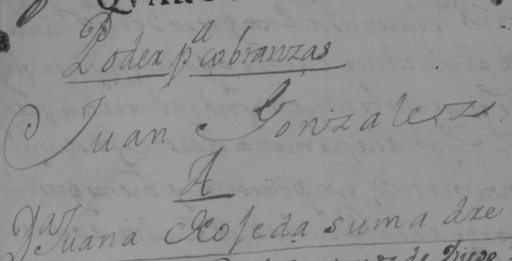 Poder pa cobranzas
Juan Gonzales
A
Da Juana Roseda su madre
de Diego